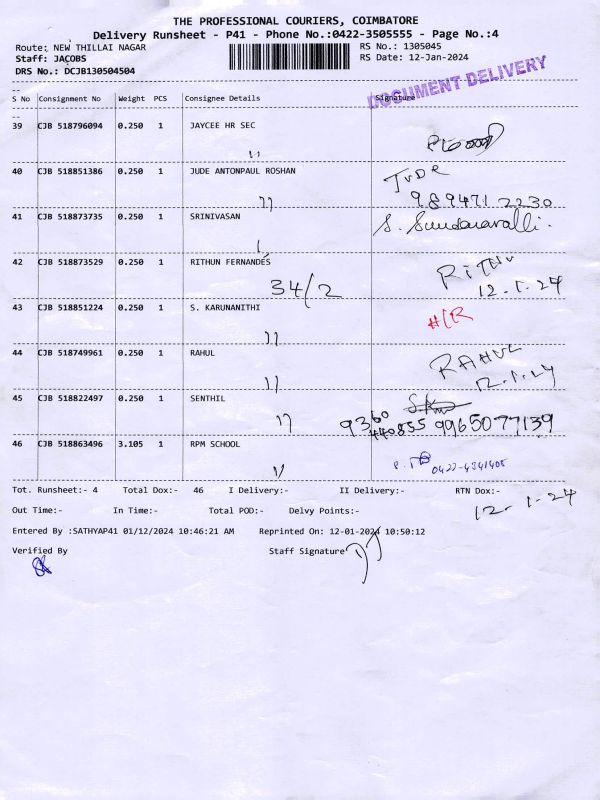 THE PROFESSIONAL COURIERS, COIMBATORE
Delivery Runsheet - P41 - Phone No.:0422-3505555 - Page No.:4
Route: NEW THILLAI NAGAR RS No.: 1305045
Staff: JACOBS RS Date: 12-Jan-2024
DRS No.: DCJB130504504
DOCUMENT DELIVERY
S No Consignment No Weight PCS Consignee Details Signature
39 CJB 518796094 0.250 1 JAYCEE HR SEC
40 CJB 518851386 0.250 1 JUDE ANTONPAUL ROSHAN JUDE
989471 2230
41 CJB 518873735 0.250 1 SRINIVASAN S. Sundaravalli.
42 CJB 518873529 0.250 1 RITHUN FERNANDES RITHU
34/2 12-1-24
43 CJB 518851224 0.250 1 S. KARUNANITHI
44 CJB 518749961 0.250 1 RAHUL RAHUL
12-1-24
45 CJB 518822497 0.250 1 SENTHIL
9360 440855 9965077139
46 CJB 518863496 3.105 1 RPM SCHOOL
Tot. Runsheet:- 4 Total Dox:- 46 I Delivery:- II Delivery:- RTN Dox:-
12-1-24
Out Time:- In Time:- Total POD:- Delvy Points:-
Entered By :SATHYAP41 01/12/2024 10:46:21 AM Reprinted On: 12-01-2024 10:50:12
Verified By Staff Signature